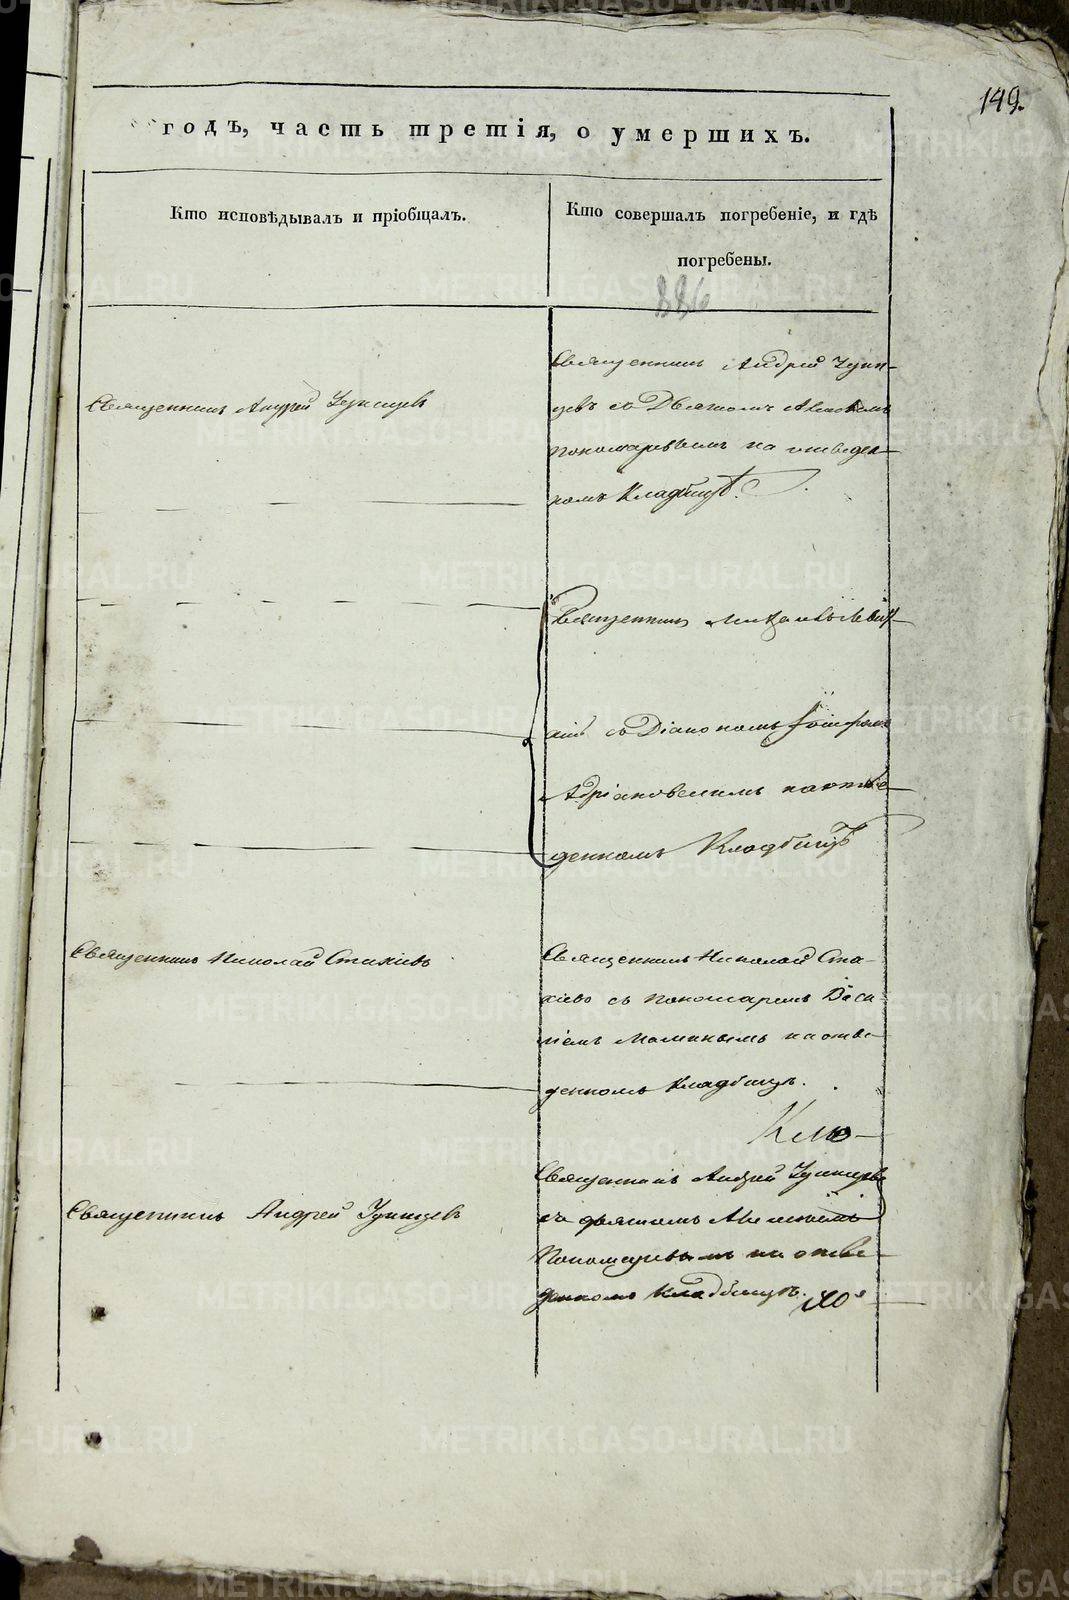 149.
годъ, часть третія, о умершихъ.
Кто исповѣдывалъ и пріобщалъ.
Кто совершалъ погребеніе, и гдѣ
погребены.
886
Священникъ Андрей
Священникъ Андрей
съ Дьячкомъ
Пономаревымъ на отведен-
номъ Кладбищѣ.
Священникъ
съ Діакономъ
Адріановскимъ на отве-
денномъ Кладбищѣ
Священникъ Николай Стахіевъ
Священникъ Николай Ста-
хіевъ съ пономаремъ Васи
ліемъ Маминымъ на отве-
денномъ Кладбищѣ.
Священникъ Андрей
Священникъ Андрей
съ дьячкомъ Алексѣемъ
Пономаревымъ на отве-
денномъ Кладбищѣ.
METRIKI.GASO-URAL.RU